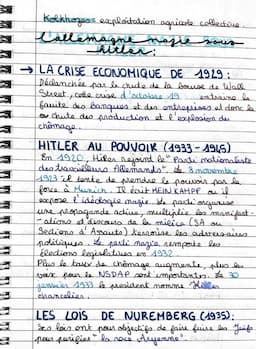 Kolkhozes exploitation agricole collective
L'allemagne nazie sous
hitler:
→ LA CRISE ECONOMIQUE DE 1929:
Déclanchée par la chute de la bourse de Wall
Street, cette crise d'octobre 19 entraine la
faillite des banques et des entreprises et donc la
chute des production et l'explosion du
chômage.
HITLER AU POUVOIR (1933-1945)
En 1920, Hitler rejoind le "Parti nationaliste
des travailleurs Allemands". Le 8 novembre
1923 il tente de prendre le pouvoir par la
force à Munich. Il écrit MEIN KAMPF où il
expose l'idéologie nazie. Le parti organise
une propagande active, multiplie les manifest-
ations et discours de la milice (SA ou
Sections d'Assauts) terrorise les adversaires
politiques. Le parti nazie remporte les
élections législatives en 1932.
Plus le taux de chômage augmente, plus les
voix pour le NSDAP sont importantes. Le 30
janvier 1933 le président nomme Hitler
chancelier.
LES LOIS DE NUREMBERG (1935):
Ses lois ont pour objectifs de faire fuire les Juifs
pour purifier "la race Aryenne".